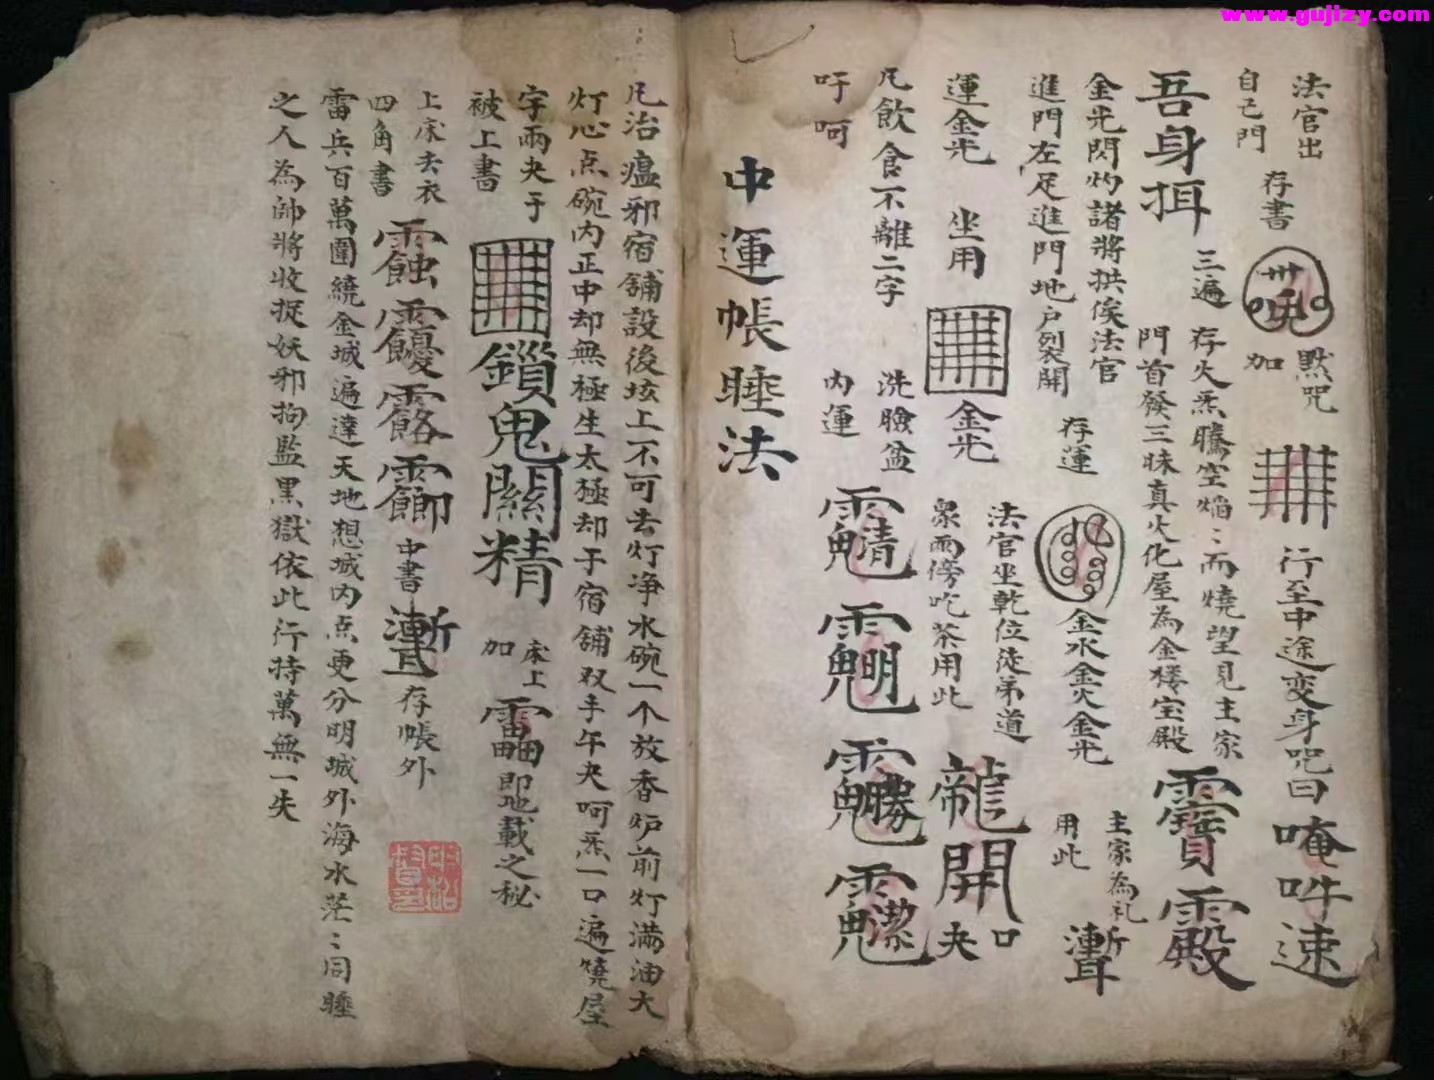 www.gujizy.com
法官出
自己門
存書
默咒
加
行至中途变身咒曰唵吽速
吾身抇
三遍
存火炁騰空焰：而燒望見主家
門首發三昧真火化屋為金楼宝殿
金光閃灼諸將拱俟法官
進門左足進門地户裂開
存運
金水金火金光
主家為礼
用此
運金光
坐用
金光
法官坐乾位徒弟道
衆兩傍吃茶用此
龍開
口
夬
凡飲食不離二字
吁呵
洗臉盆
内運
中運帳睡法
凡治瘟邪宿舖設後垓上不可去灯净水碗一个放香炉前灯满油大
灯心点碗内正中却無極生太極却于宿舖双手午夬呵炁一口遍饒屋
字兩夬于
被上書
鎖鬼關精
床上
加
即地載之秘
上床去衣
四角書
中書
存帳外
雷兵百萬圍繞金城遍達天地想城内点更分明城外海水茫：同睡
之人為帥將收捉妖邪拘監黑獄依此行持萬無一失